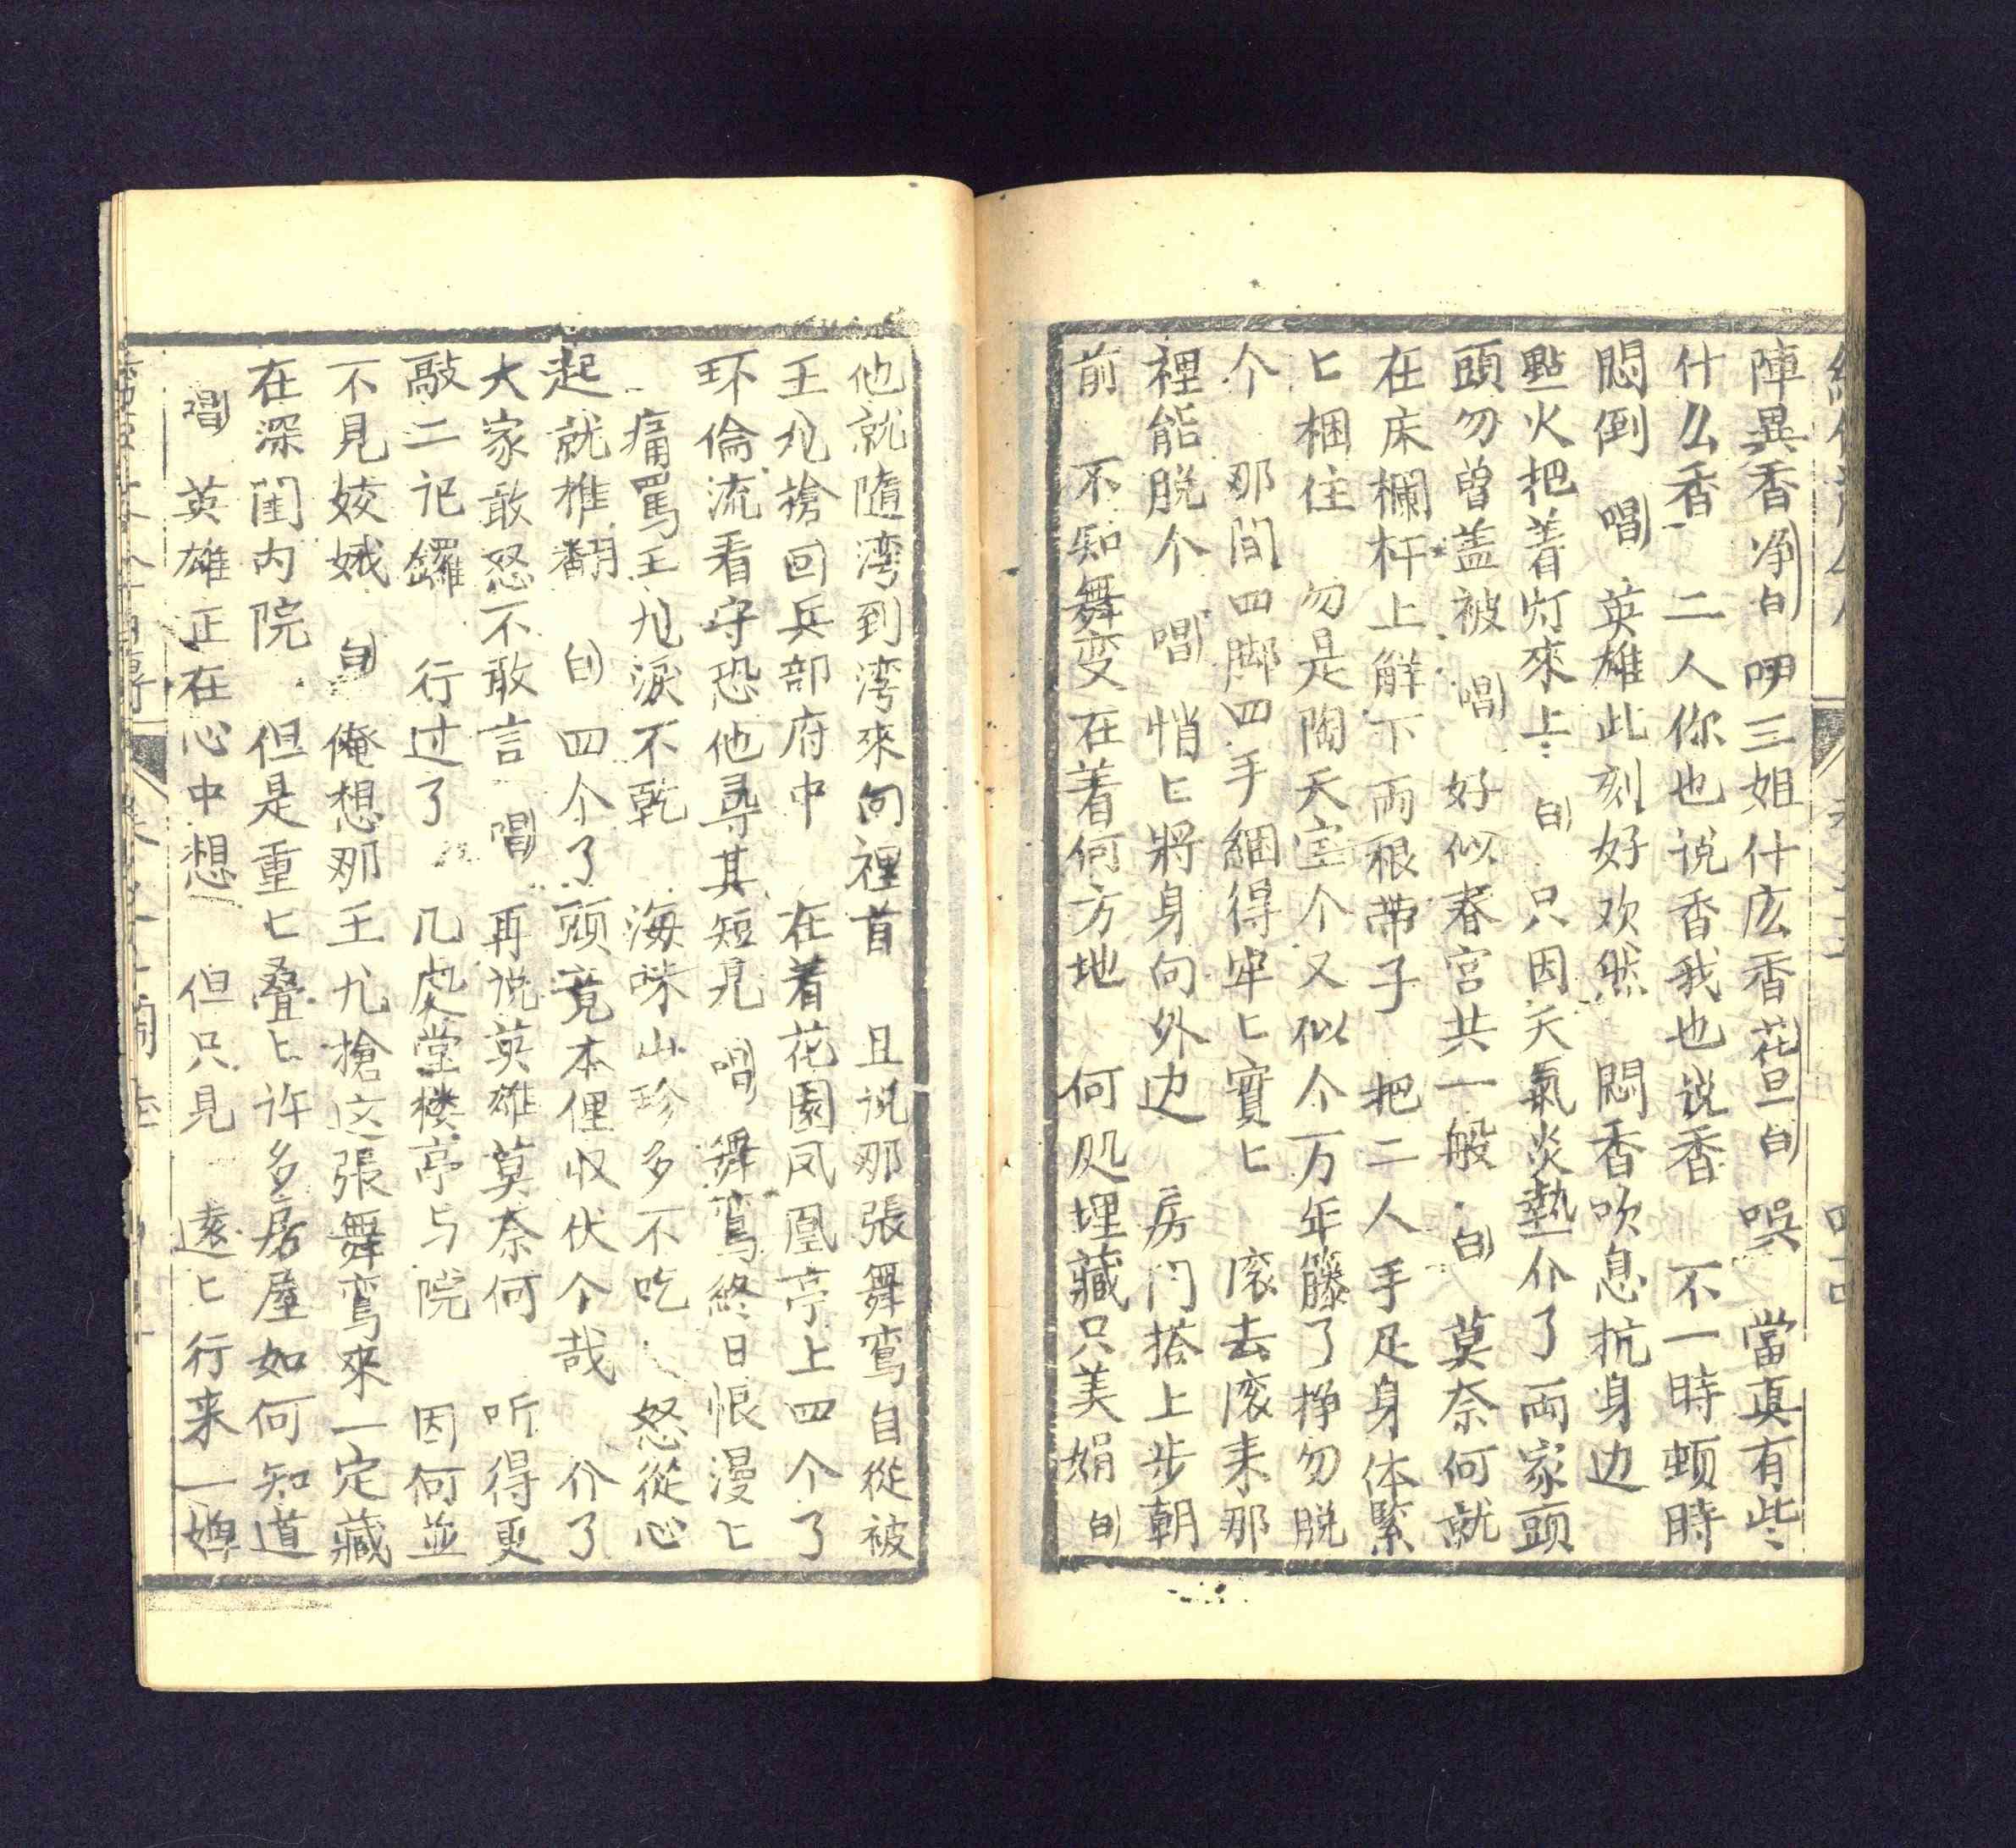 陣異香净白　吚三姐什庅香花旦白　哾　當真有些
什么香　二人你也说香我也说香　不一時頓時
悶倒　唱　英雄此刻好欢然　悶香吹息抗身边
㸃火把着灯來上　白　只因天氣炎熱介了両家頭
頭勿曾盖被　唱　好似春宫共一般　白　莫奈何就
在床欄杆上解下両根带子　把二人手足身体緊
匕梱住　勿是陶天宝个又似个万年籐了掙勿脱
个　那间四脚四手綑得牢匕實匕　滚去滚来那
裡能脱个　唱　悄匕將身向外边　房门搭上步朝
前　不知舞变在着何方地　何处埋藏只美娟　白
他就隨湾到湾來向裡首　且说那張舞鸾自從被
王九搶回兵部府中　在着花園凤凰亭上四个了
环倫流看守恐他尋其短見　唱　舞鸾終日恨漫匕
痛罵王九淚不乾　海味山珍多不吃　怒從心
起就推翻　白　四个了頭竟本俚収伏个哉　介了
大家敢怒不敢言　唱　再说英雄莫奈何　听得更
敲二记鑼　行过了　几处堂楼亭与院　因何並
不見姣娥　白　俺想那王九搶这張舞鸾來一定藏
在深闺内院　但是重匕叠匕许多房屋如何知道
唱　英雄正在心中想　但只見　遠匕行来一婵